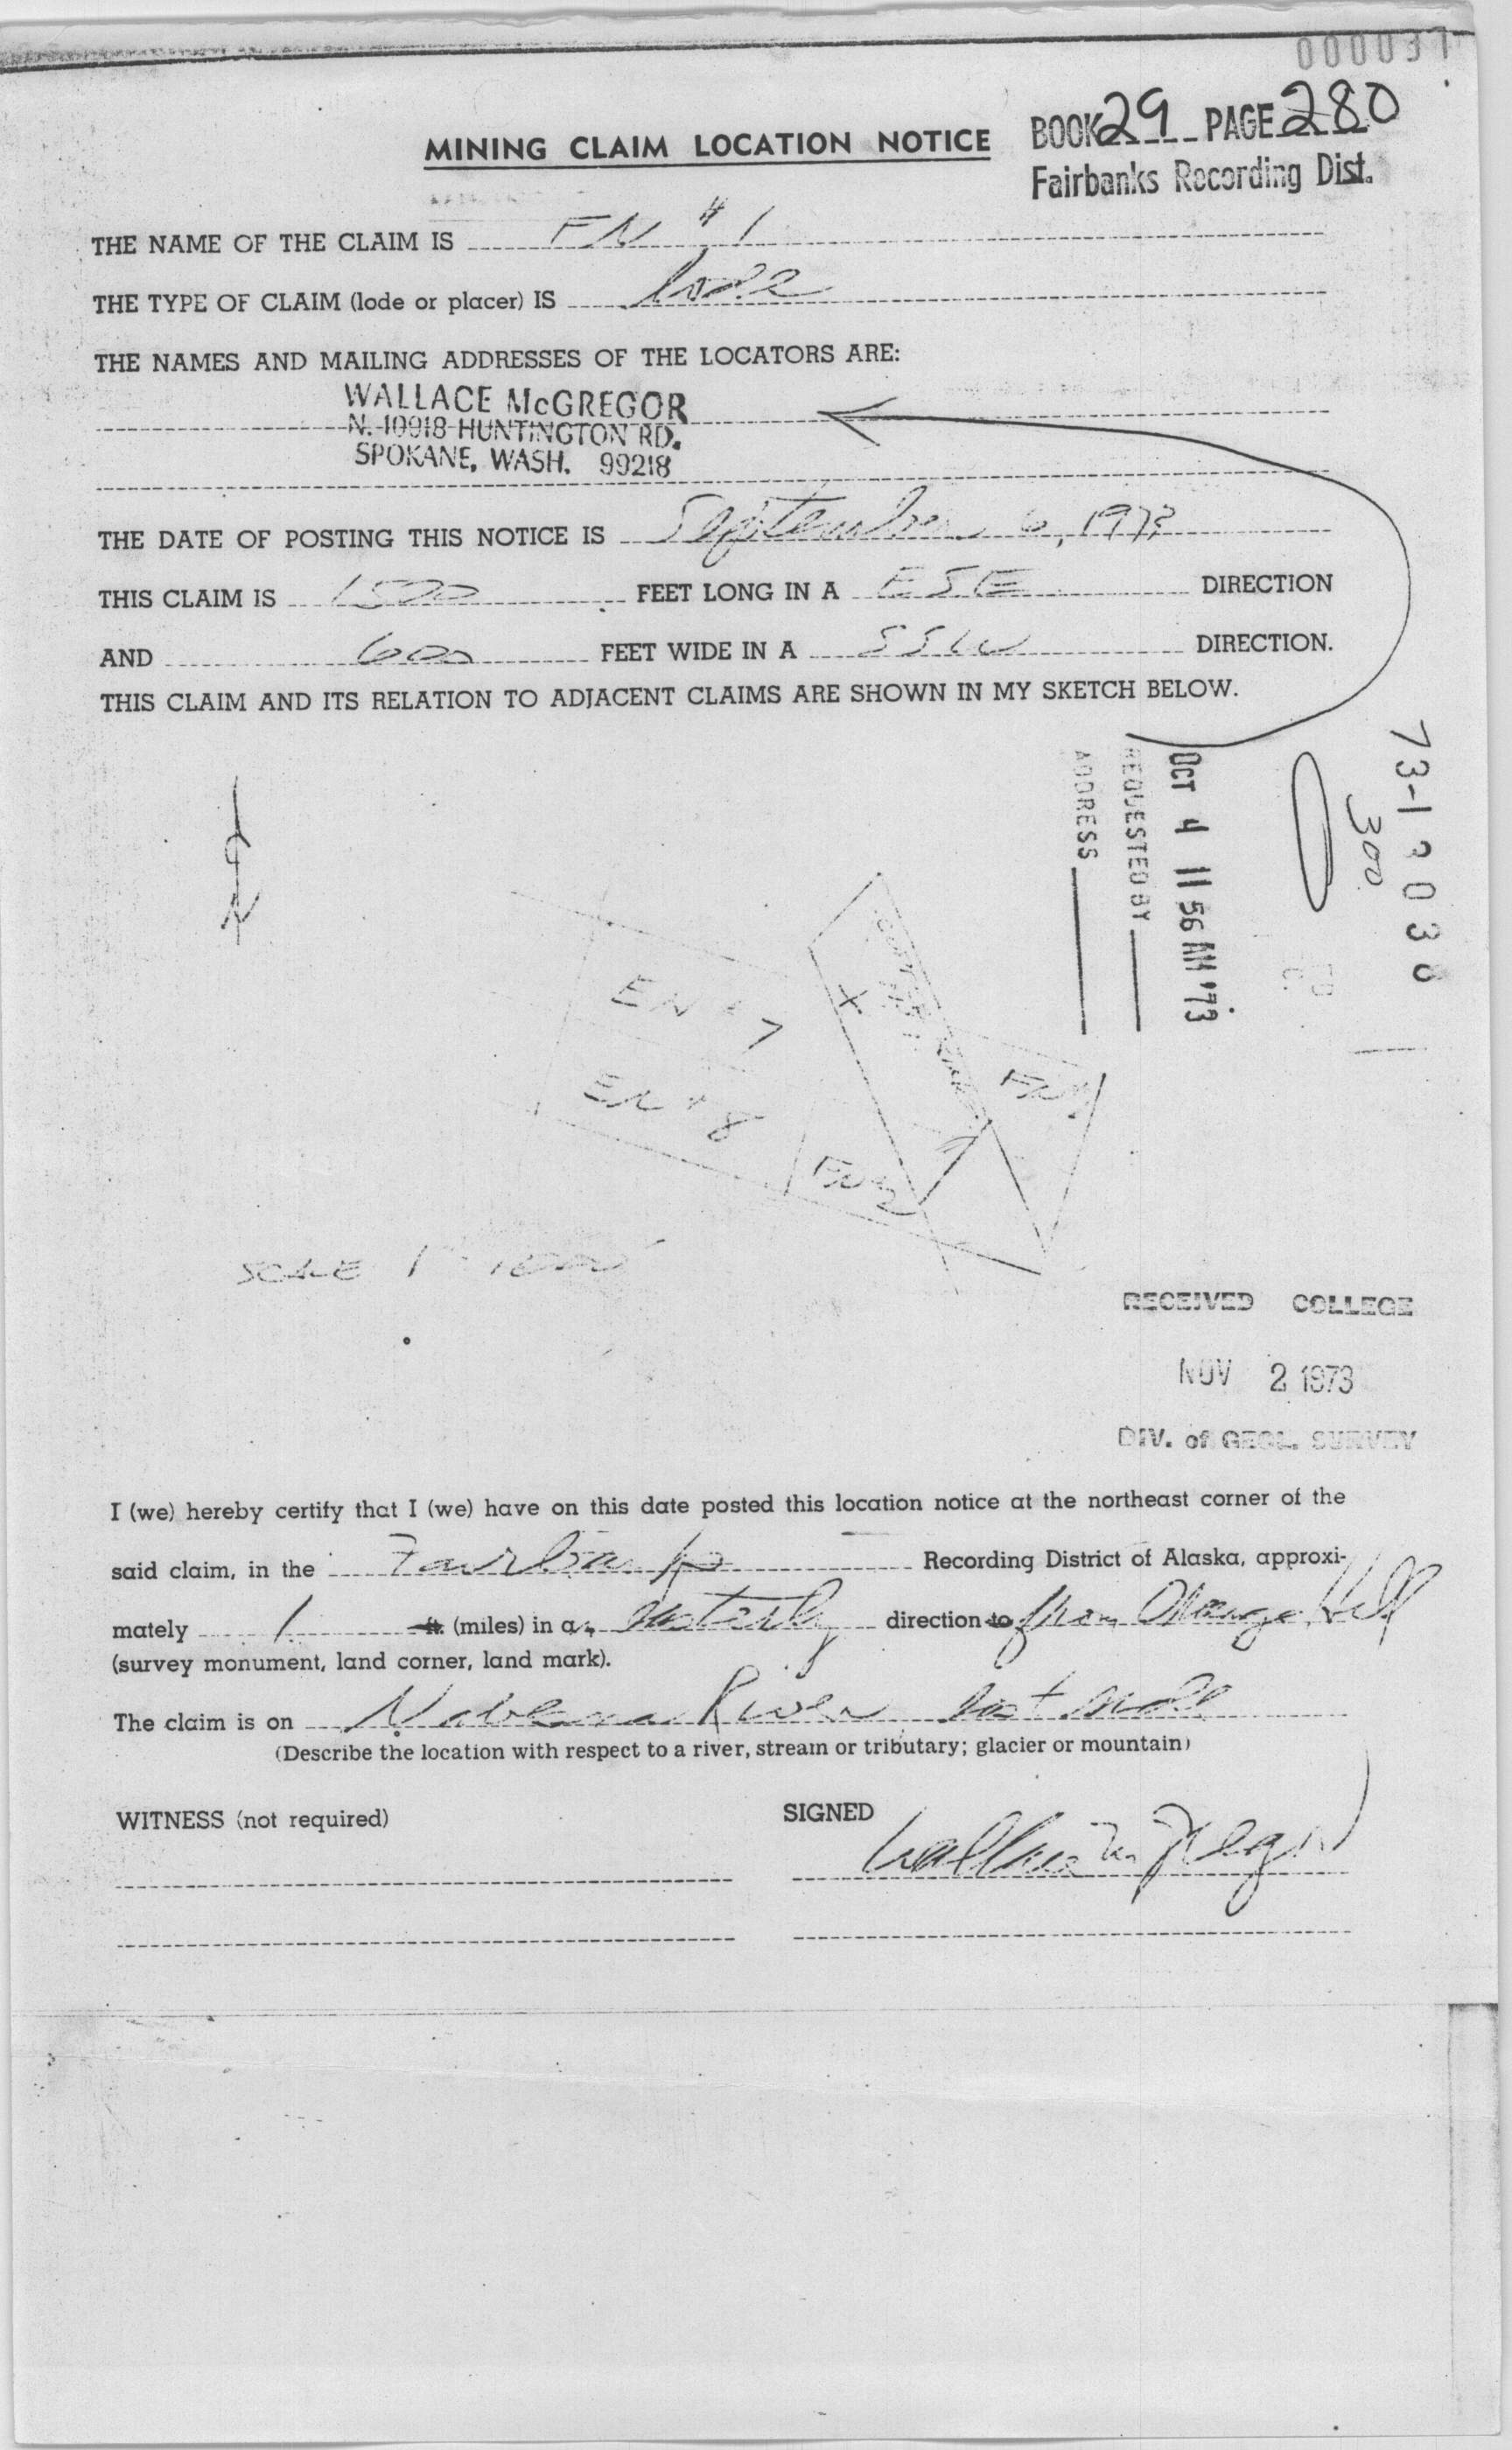 MINING CLAIM LOCATION NOTICE
BOOK 29 PAGE 280
Fairbanks Recording Dist.
THE NAME OF THE CLAIM IS FN #1
THE TYPE OF CLAIM (lode or placer) IS lode
THE NAMES AND MAILING ADDRESSES OF THE LOCATORS ARE:
WALLACE McGREGOR
N. 10918 HUNTINGTON RD.
SPOKANE, WASH. 99218
THE DATE OF POSTING THIS NOTICE IS September 6,
THIS CLAIM IS 1500 FEET LONG IN A ESE DIRECTION
AND 600 FEET WIDE IN A SSW DIRECTION.
THIS CLAIM AND ITS RELATION TO ADJACENT CLAIMS ARE SHOWN IN MY SKETCH BELOW.
300
OCT 4 11 56 AM '73
REQUESTED BY
ADDRESS
EN #7
EN #8
SCALE
RECEIVED COLLEGE
NOV 2 1973
DIV. of GEOL. SURVEY
I (we) hereby certify that I (we) have on this date posted this location notice at the northeast corner of the
said claim, in the Fairbanks Recording District of Alaska, approxi-
mately 1 ft. (miles) in a direction to from Orange Hill
(survey monument, land corner, land mark).
The claim is on Nabesna River east side
(Describe the location with respect to a river, stream or tributary; glacier or mountain)
WITNESS (not required)
SIGNED
Wallace McGregor